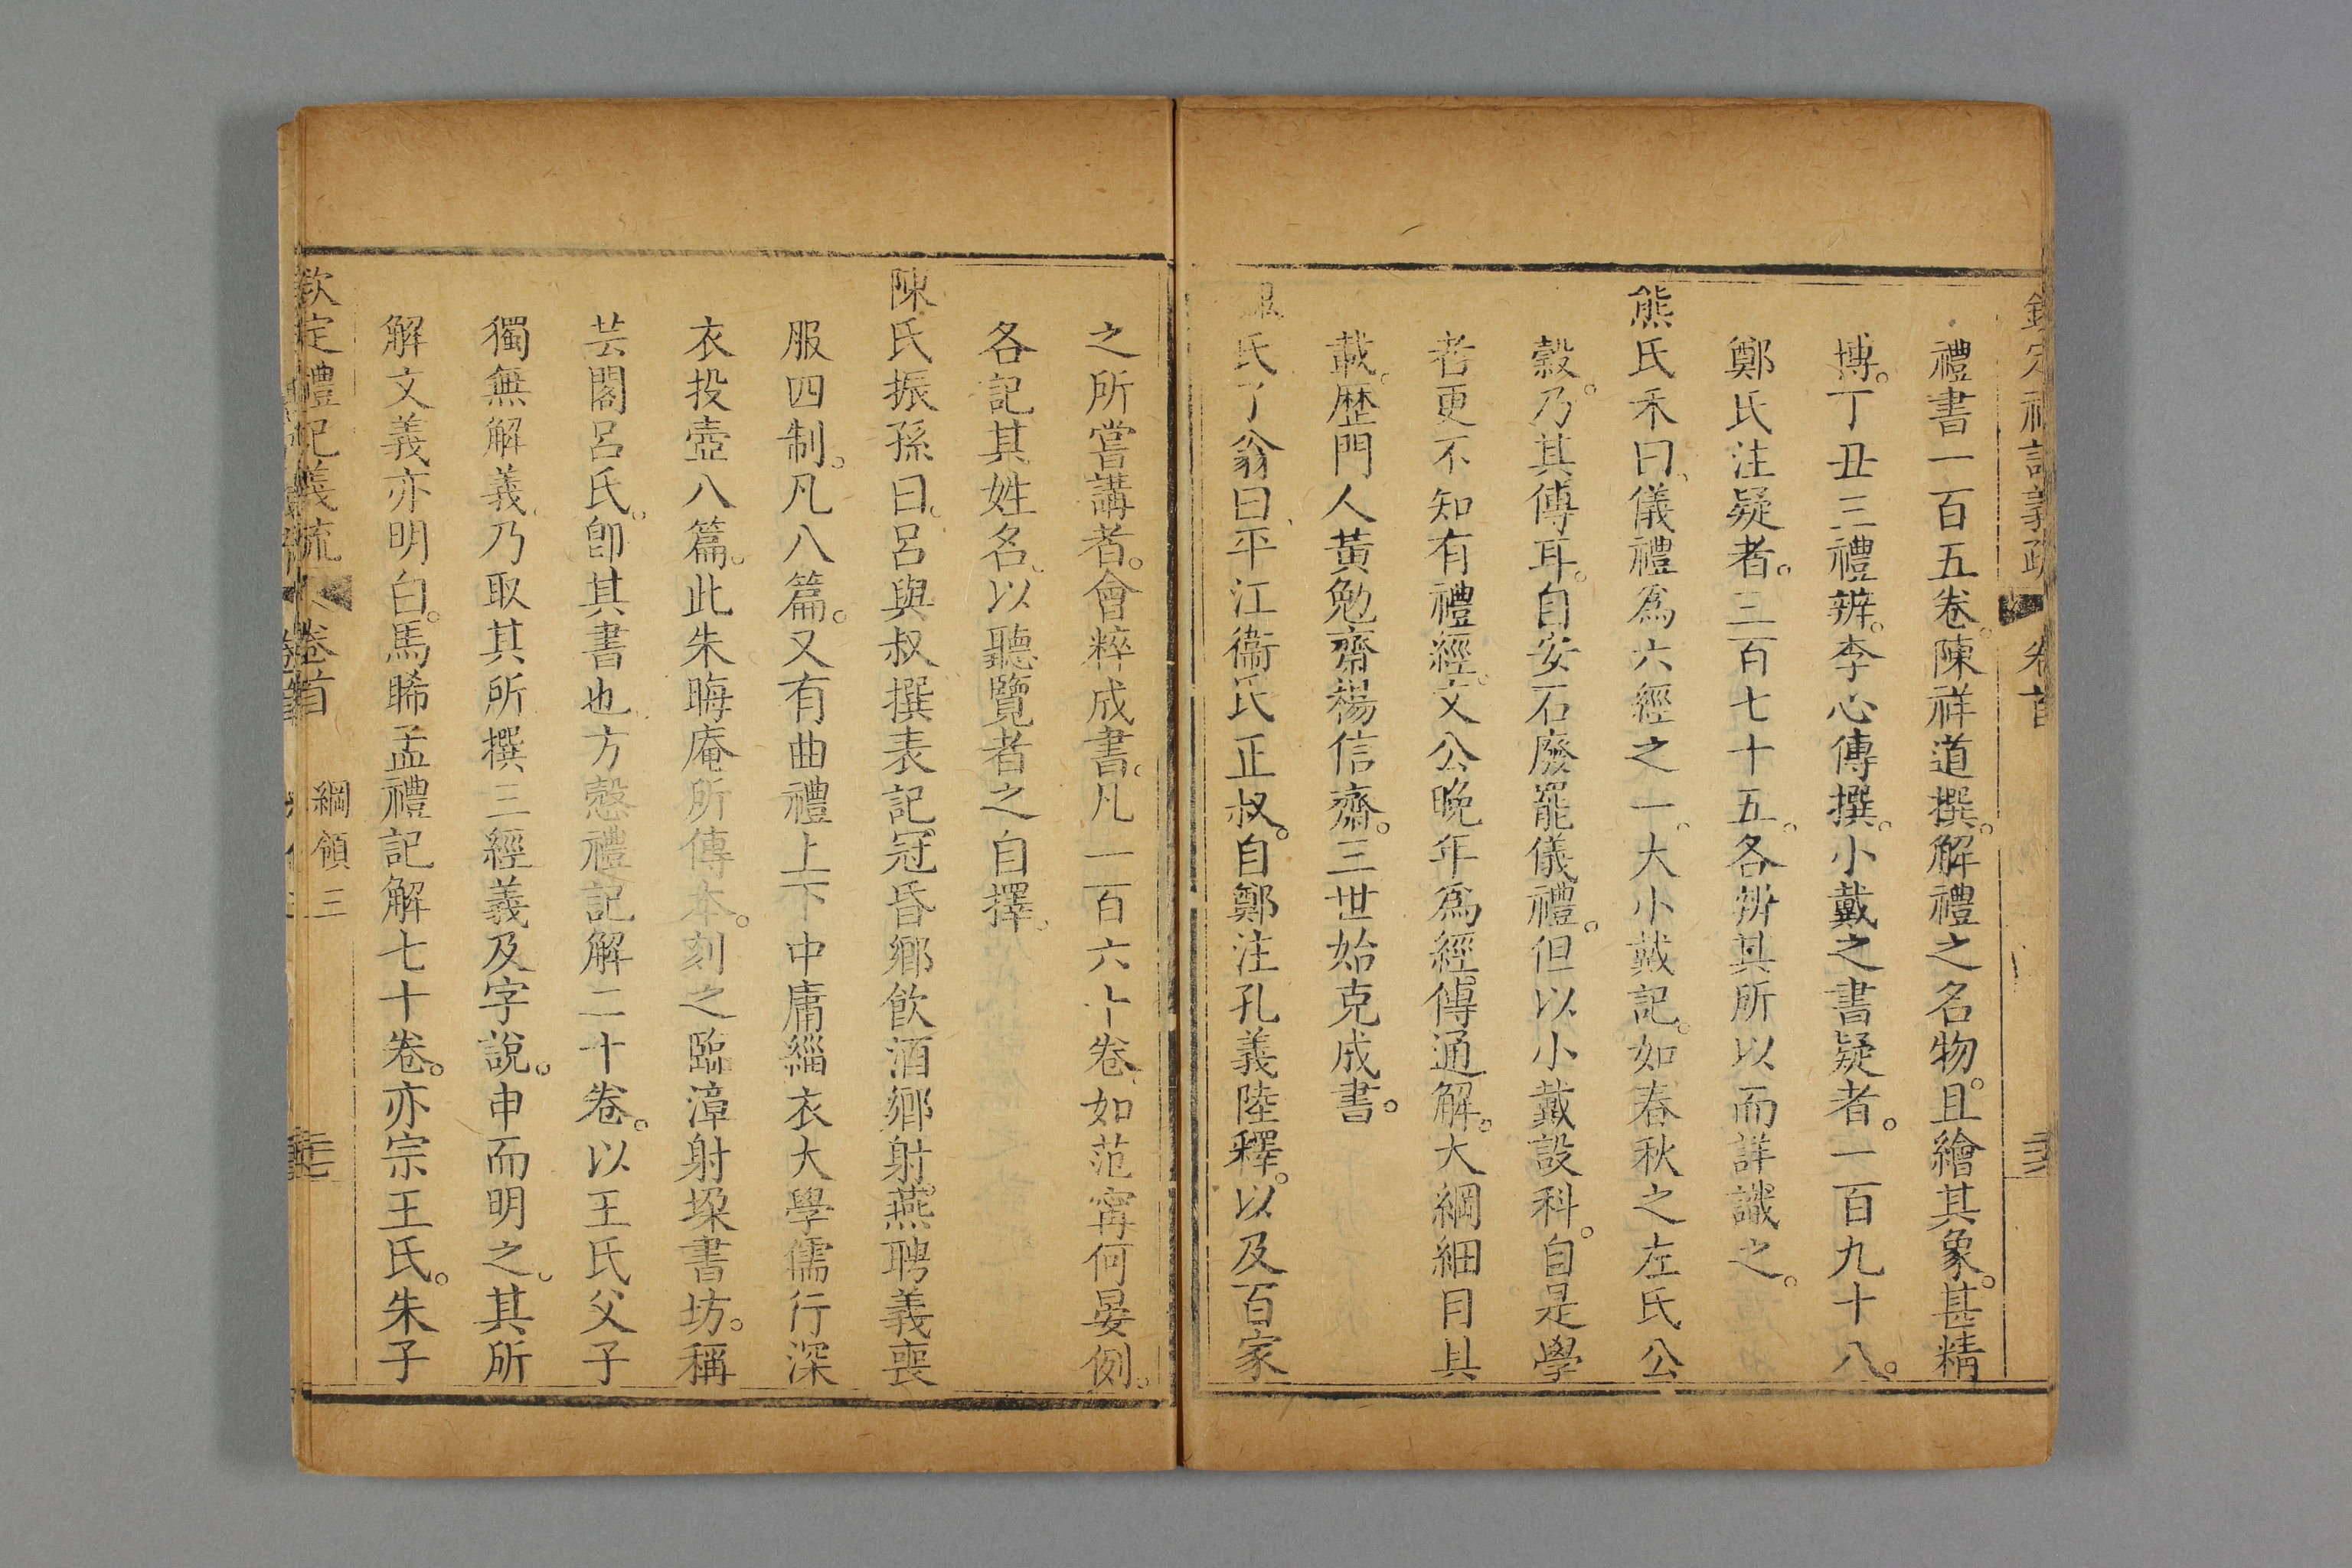 定禮記義疏 卷首
禮書一百五卷。陳祥道撰。解禮之名物。且繪其象。甚精
博。丁丑三禮辨。李心傳撰。小戴之書疑者。一百九十八。
鄭氏注疑者。三百七十五。各辨其所以而詳識之。
熊氏禾曰、儀禮爲六經之一。大小戴記。如春秋之左氏公
穀。乃其傳耳。自安石廢罷儀禮。但以小戴設科。自是學
者更不知有禮經。文公晚年爲經傳通解。大綱細目具
載。歷門人黃勉齋楊信齋。三世始克成書。
氏了翁曰、平江衞氏正叔。自鄭注孔義陸釋。以及百家
之所嘗講者。會稡成書。凡一百六十卷。如范甯何晏例。
各記其姓名。以聽覽者之自擇。
陳氏振孫曰。呂與叔撰表記冠昏鄉飲酒鄉射。燕聘義喪
服四制。凡八篇。又有曲禮上下中庸緇衣大學儒行深
衣投壺八篇。此朱晦庵所傳本。刻之臨漳射垜書坊。稱
芸閣呂氏。卽其書也。方慤禮記解二十卷。以王氏父子
獨無解義。乃取其所撰三經義及字說。申而明之。其所
解文義亦明白。馬睎孟禮記解七十卷。亦宗王氏。朱子
欽定禮記義疏 卷首 綱領三